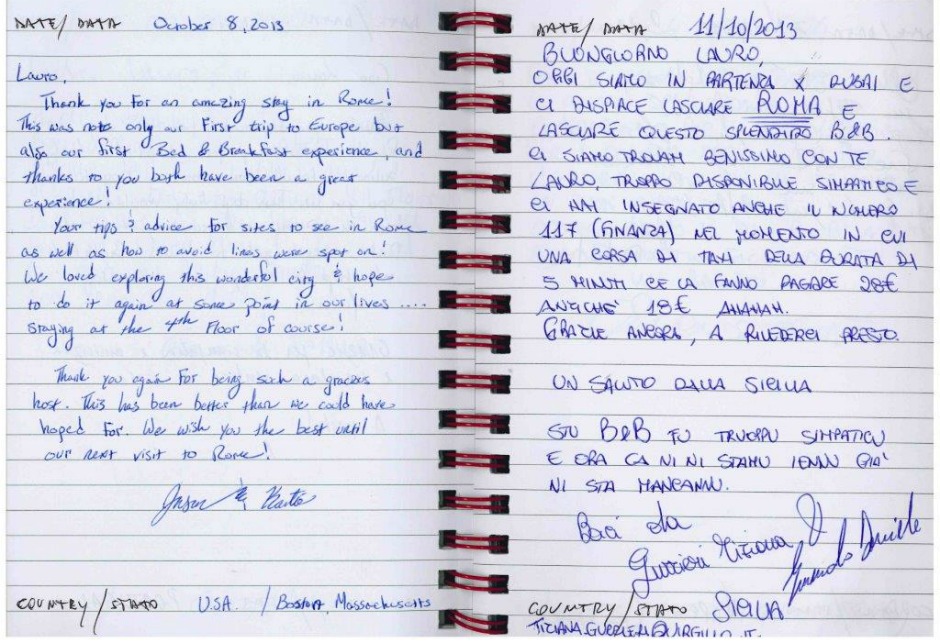 DATE/DATA October 8, 2013
Lauro,
Thank you for an amazing stay in Rome!
This was note only our first trip to Europe but
also our first Bed & Breakfast experience, and
thanks to you both have been a great
experience!
Your tips & advice for sites to see in Rome
as well as how to avoid lines were spot on!
We loved exploring this wonderful city & hope
to do it again at some point in our lives ....
staying at the 4th Floor of course!
Thank you again for being such a
host. This has been better than we could have
hoped for. We wish you the best until
our next visit to Rome!
Jason &
COUNTRY/STATO U.S.A. / Boston, Massachusetts
DATE/DATA 11/10/2013
BUONGIORNO LAURO,
OGGI SIAMO IN PARTENZA X DUBAI E
CI DISPIACE LASCIARE ROMA E
LASCIARE QUESTO SPLENDIDO B&B.
CI SIAMO TROVATI BENISSIMO CON TE
LAURO, TROPPO DISPONIBILE SIMPATICO E
CI HAI INSEGNATO ANCHE IL NUMERO
117 (FINANZA) NEL MOMENTO IN CUI
UNA CORSA DI TAXI DELLA DURATA DI
5 MINUTI CE LA FANNO PAGARE 28€
ANZICHE' 18€ AHAHAH.
GRAZIE ANCORA, A RIVEDERCI PRESTO.
UN SALUTO DALLA SICILIA
STU B&B FU TRUOPPU SIMPATICU
E ORA CA NI NI STAMU IENNU GIA'
NI STA MANCANNU.
Baci da
Guccieri Tiziana &
Davide
COUNTRY/STATO SICILIA